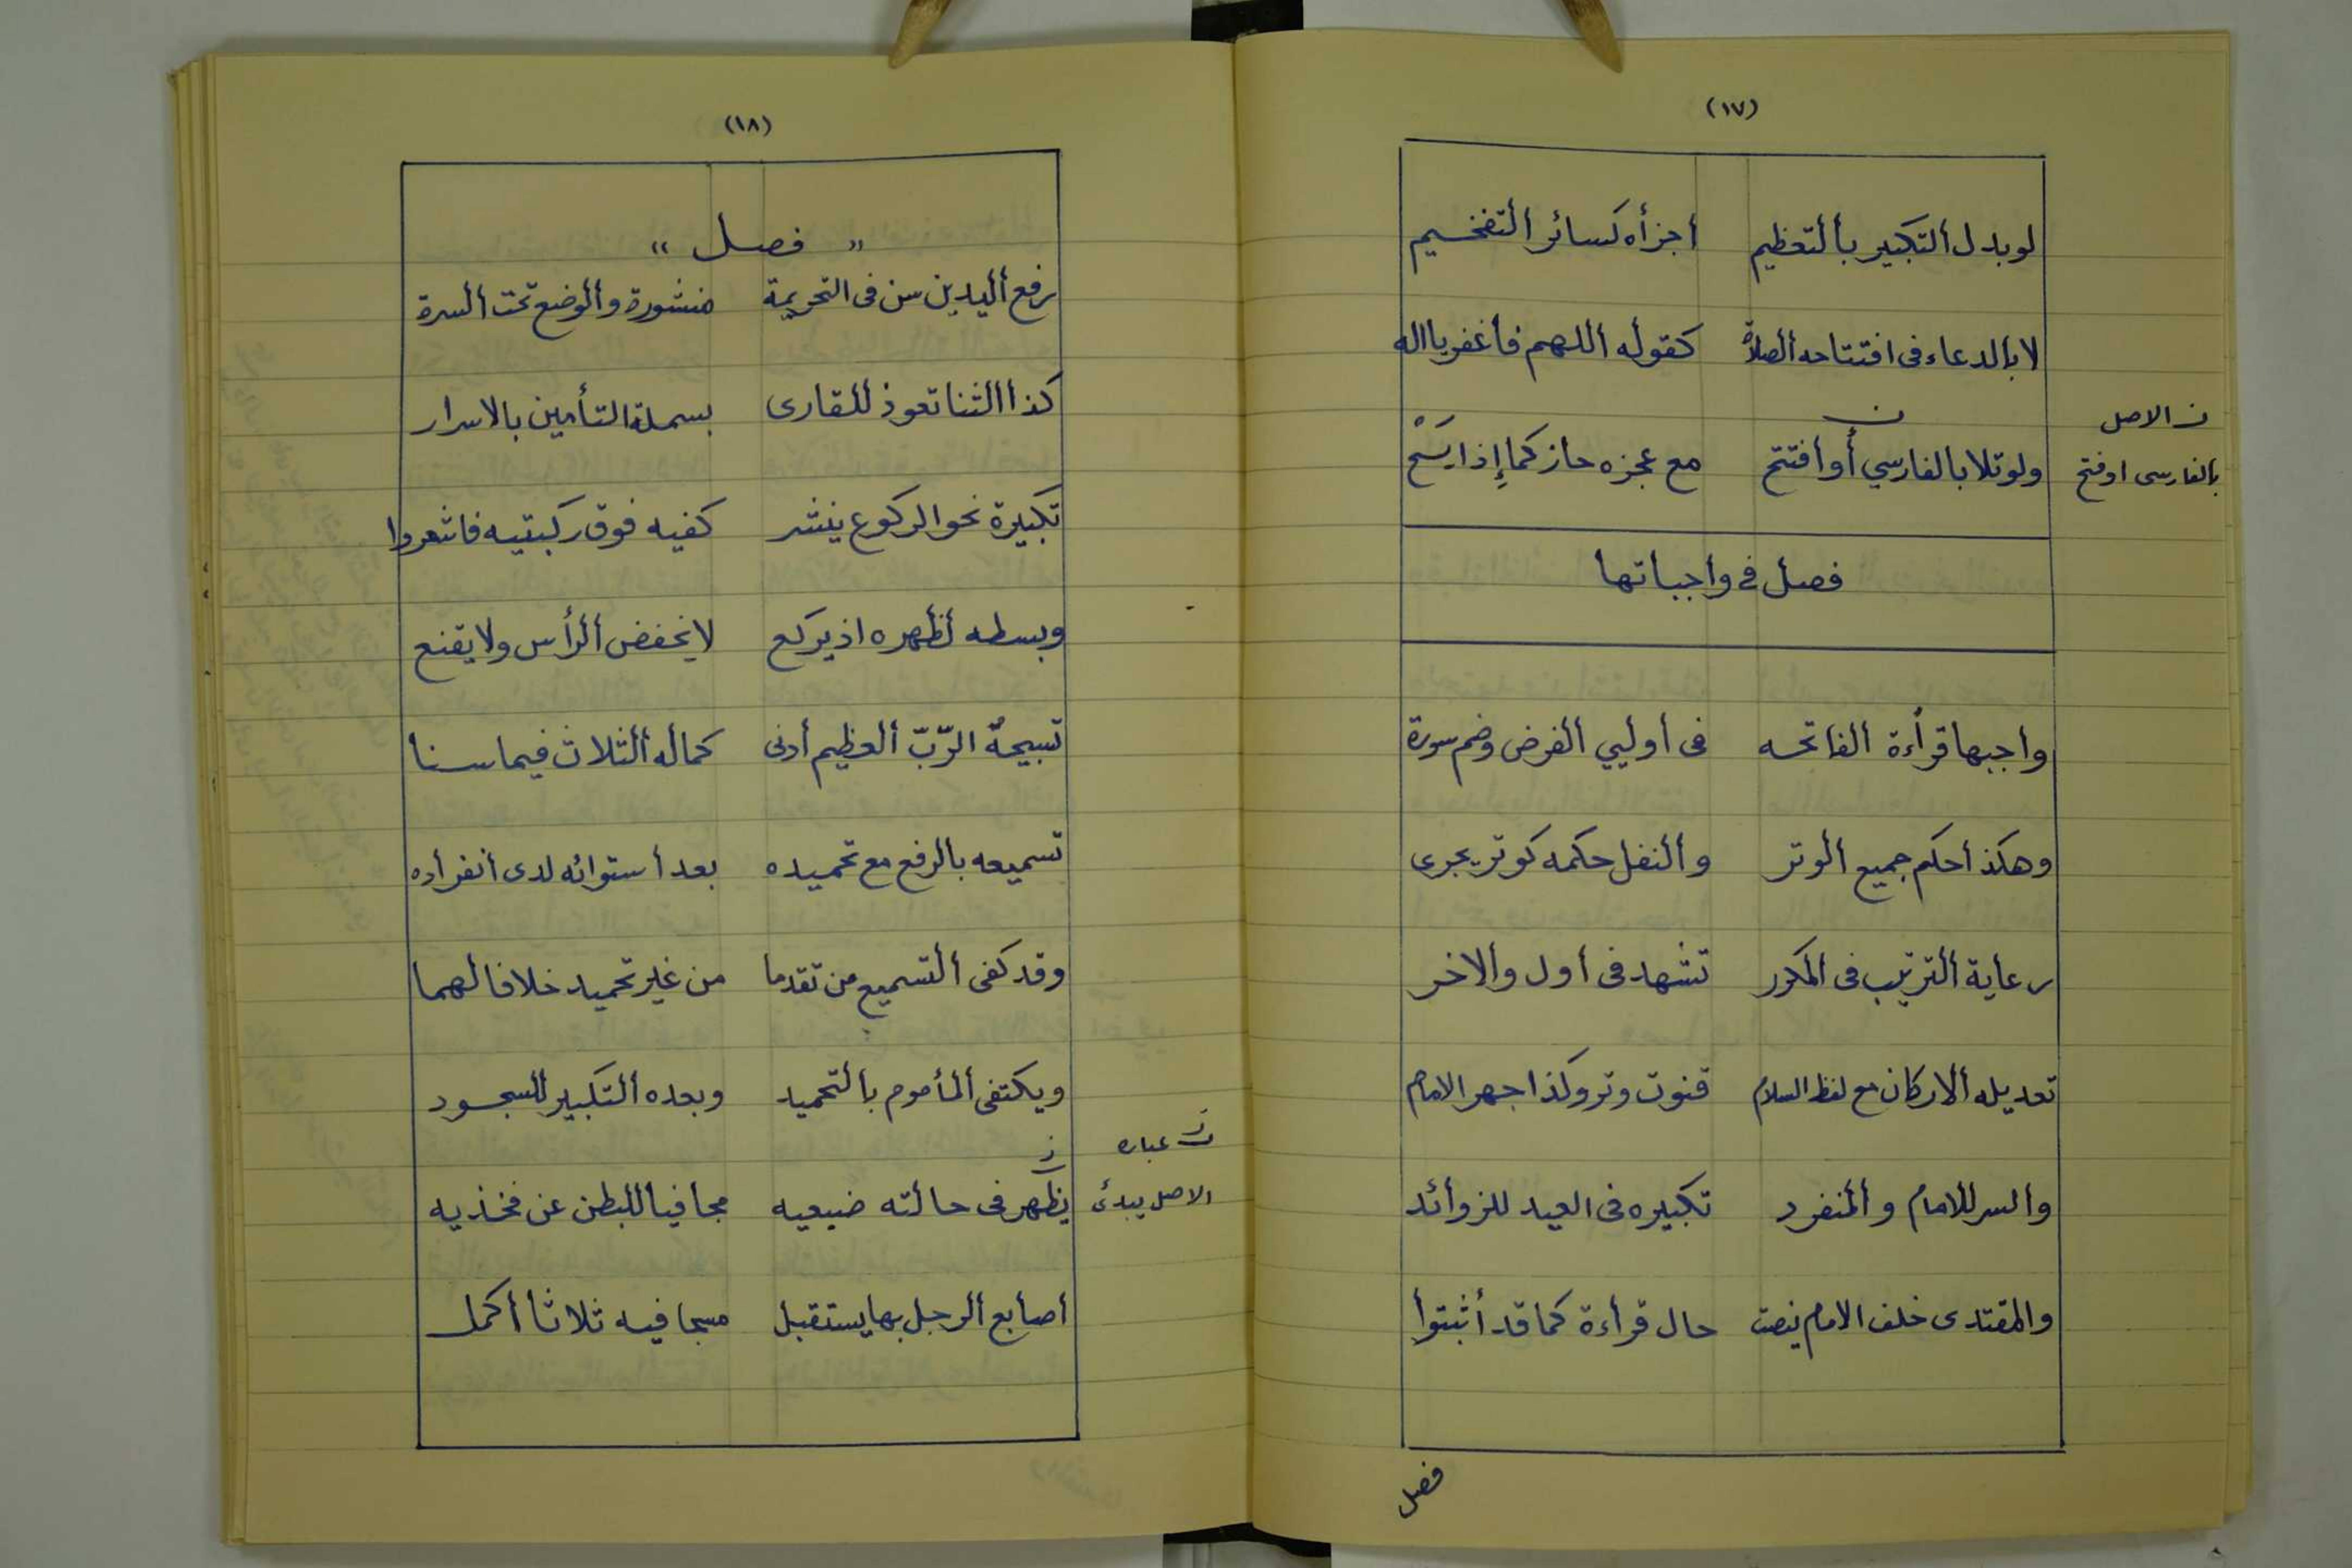 (١٧)
لو بدل التكبير بالتعظيم أجزأه كسائر التفخيم
لا بالدعاء فى افتتاحه الصلاة كقوله اللهم فاغفر يا اله
ولو تلا بالفارسي أو افتتح مع عجزه حاز كما إذا يسح
ن الاصل
بالفارسى اوفتح
فصل في واجباتها
واجبها قرأءة الفاتحه فى أوليي الفرض وضم سورة
وهكذا حكم جميع الوتر والنفل حكمه كوتر يجرى
رعاية الترتيب فى المكرر تشهد فى أول والاخر
تعديله الاركان مع لفظ السلام قنوت وتر وكذا جهر الامام
والسر للامام والمنفرد تكبيره فى العيد للزوائد
والمقتدى خلف الامام ينصت حال قرأءة كما قد أثبتوا
فصل
(١٨)
" فصل "
رفع اليدين سن فى التحريمة منشورة والوضع تحت السرة
كذا الثنا تعوذ للقارى بسملة التأمين بالاسرار
تكبيرة نحو الركوع ينشر كفيه فوق ركبتيه فاشعروا
وبسطه لظهره اذ يركع لا يخفض الرأس ولا يقنع
تسبيحة الرّبّ العظيم أدنى كماله الثلاث فيما سنا
تسميعه بالرفع مع تحميده بعد أستوائه لدى أنفرأده
وقد كفى التسميع من تقدما من غير تحميد خلافا لهما
ويكتفى المأموم بالتحميد وبعده التكبير للسجود
يظهر فى حالته ضبعيه مجافيا للبطن عن فخذيه
ن عباره
الاصل يبدئ
اصابع الرجل بها يستقبل مسبحا فيه ثلاثا أكمل